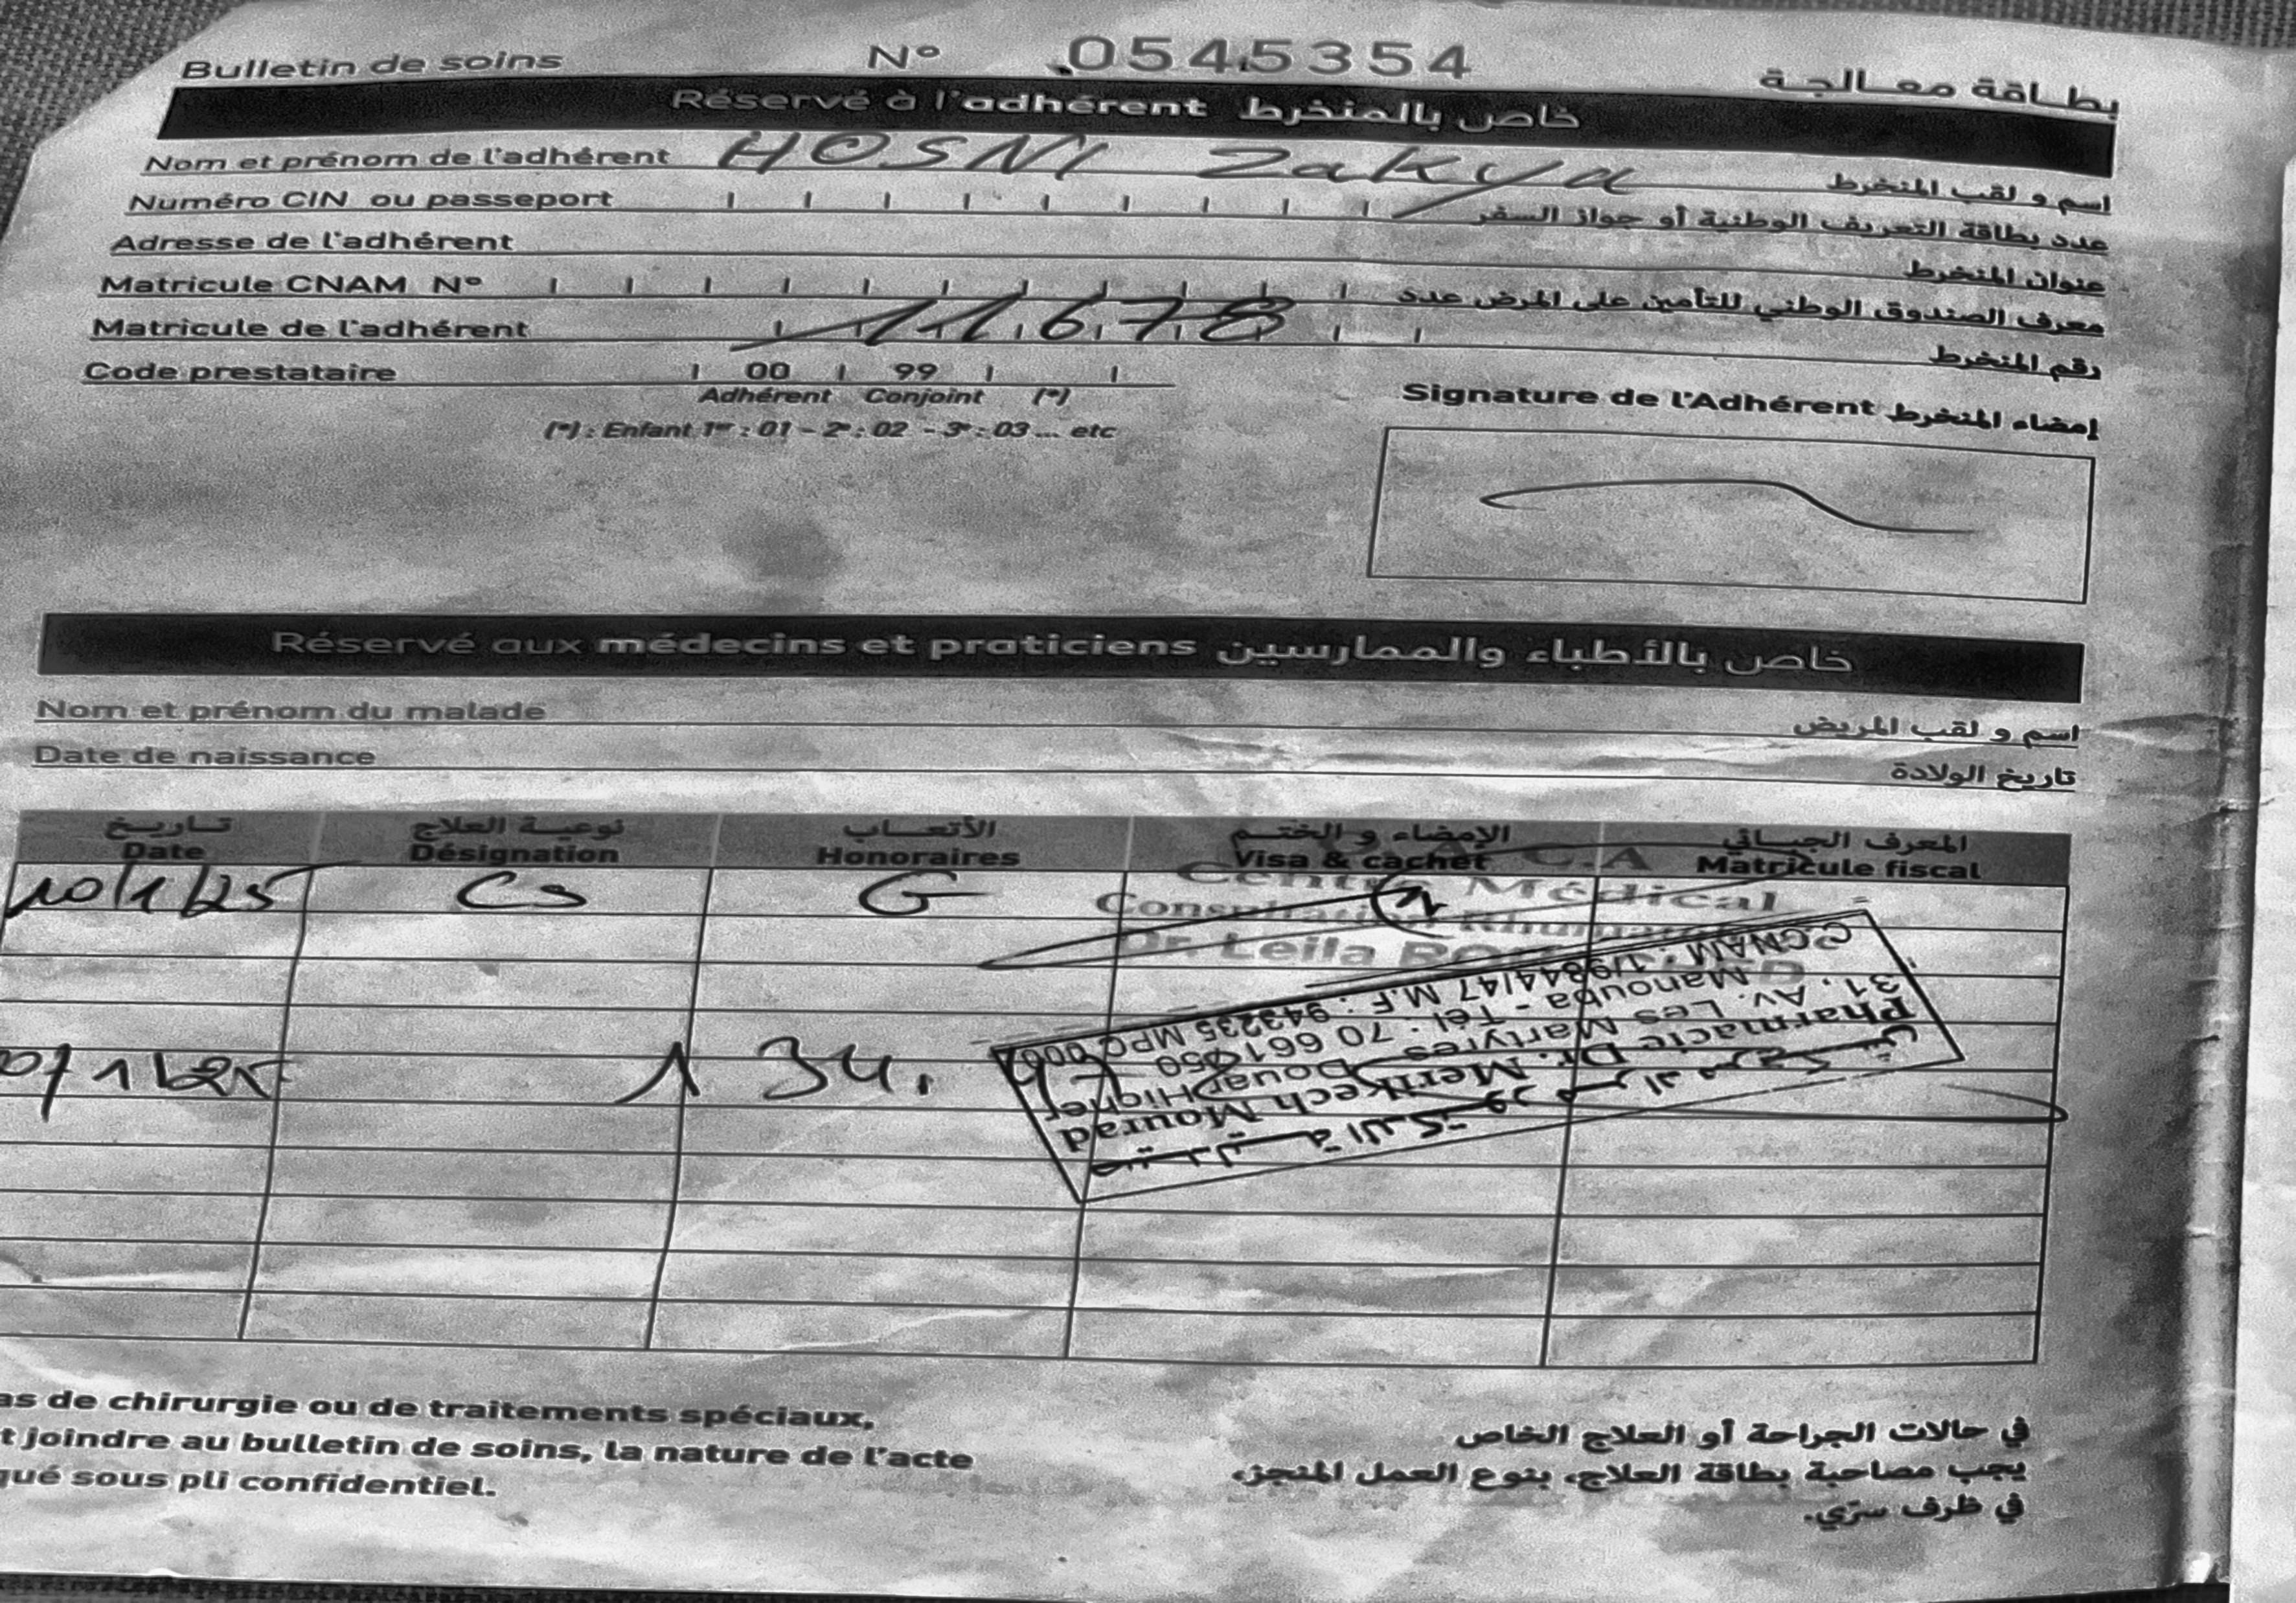 Bulletin de soins N° 0545354 بطاقة معالجة
Réservé à l'adhérent خاص بالمنخرط
Nom et prénom de l'adhérent HOSNI Zakya اسم و لقب المنخرط
Numéro CIN ou passeport عدد بطاقة التعريف الوطنية أو جواز السفر
Adresse de l'adhérent عنوان المنخرط
Matricule CNAM N° معرف الصندوق الوطني للتأمين على المرض عدد
Matricule de l'adhérent 11678 رقم المنخرط
Code prestataire 00 99
Adhérent Conjoint (*)
(*) : Enfant 1er : 01 - 2e : 02 - 3e : 03 ... etc
Signature de l'Adhérent إمضاء المنخرط
Réservé aux médecins et praticiens خاص بالأطباء والممارسين
Nom et prénom du malade اسم و لقب المريض
Date de naissance تاريخ الولادة
تاريخ نوعية العلاج الأتعاب الإمضاء و الختم المعرف الجبائي
Date Désignation Honoraires Visa & cachet Matricule fiscal
10/1/25 Cs G
C.A
Centre Médical
Consultation
Dr. Leila
0/1/25 1 34,
صيدلية الدكتور مراد مركش
Pharmacie Dr. Merikech Mourad
31, Av. Les Martyres Douar Hicher
Manouba - Tél : 70 661 050
C.CNAM : 1/9844/47 M.F : 943235 MPC 000
as de chirurgie ou de traitements spéciaux,
t joindre au bulletin de soins, la nature de l'acte
qué sous pli confidentiel.
في حالات الجراحة أو العلاج الخاص
يجب مصاحبة بطاقة العلاج، بنوع العمل المنجز،
في ظرف سرّي.